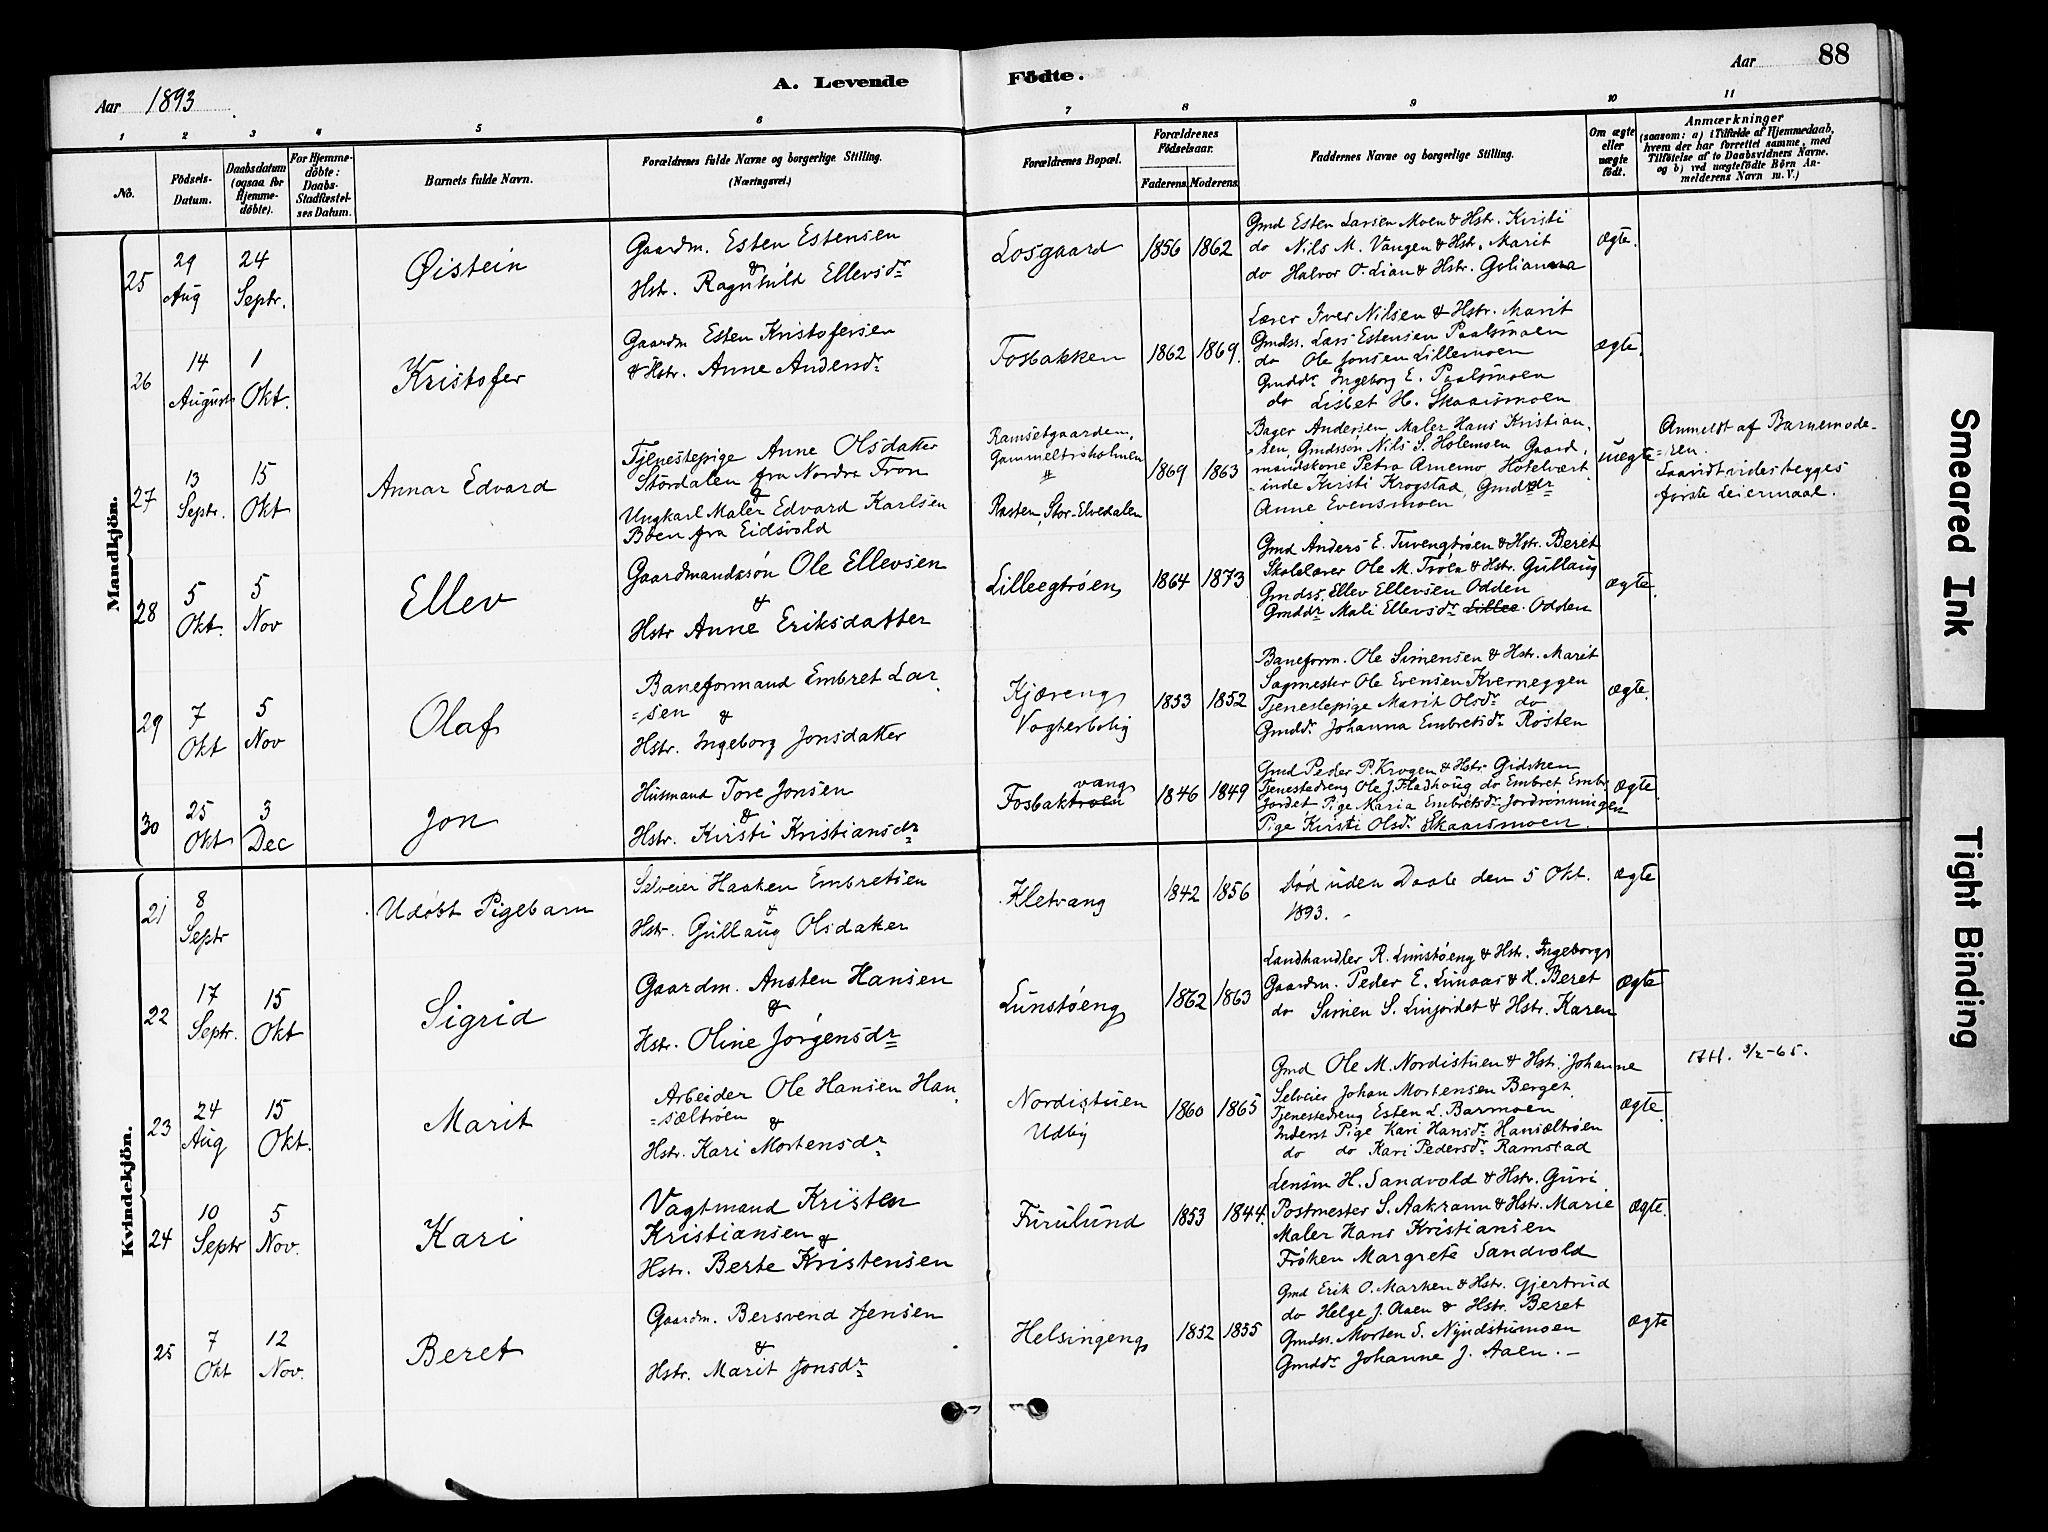 88
A. Levende Födte.
Aar 1893
Aar
1 2 3 4 5 6 7 8 9 10 11
No.
Födsels-Datum.
Daabsdatum (ogsaa for Hjemme-döbte).
For Hjemme-döbte: Daabs-Stadfæstel-ses Datum.
Barnets fulde Navn.
Forældrenes fulde Navne og borgerlige Stilling.
(Næringsvei.)
Forældrenes Bopæl.
Forældrenes Födselsaar.
Faderens. Moderens.
Faddernes Navne og borgerlige Stilling.
Om ægte eller uægte födt.
Anmærkninger
(saasom: a) i Tilfælde af Hjemmedaab,
hvem der har forrettet samme, med
Tilföielse af to Daabsvidners Navne.
og b) ved uægtefödte Börn An-
melderens Navn m. V.)
Mandkjön.
25
29 Aug
24 Septr.
Øistein
Gaardm. Esten Estensen
&
Hstr. Ragnhild Ellevsdr
Losgaard
1856 1862
Gmd Esten Larsen Moen & Hstr. Kirsti
do Nils M. Vangen & Hstr. Marit
do Halvor O. Lian & Hstr. Golianna
ægte.
26
14 August
1 Okt.
Kristofer
Gaardm Esten Kristofersen
& Hstr. Anne Andersdr
Fosbakken
1862 1869.
Lærer Iver Nilsen & Hstr. Marit
Gmdss. Lars Estensen Paalsmoen
do Ole Jonsen Lillemoen
Gmddr Ingeborg E. Paalsmoen
do Lisbet H. Skaarsmoen
ægte.
27
13 Septr.
15 Okt
Annar Edvard
Tjenestepige Anne Olsdatter
Stordalen fra Nordre Fron
&
Ungkarl Maler Edvard Karlsen
Böen fra Eidsvold
Ramsetgaarden,
Gammeltröholmen
Rasten, Stor-Elvedalen
1869 1863
Bager Andersen, Maler Hans Kristian-
sen, Gmdssøn Nils S. Holemoen Gaard-
mandskone Petra Arnemo, Hotelvært-
inde Kirsti Krogstad, Gmddr
Anne Evensmoen
uægte
Anmeldt af Barnemode-
ren.
Saavidt vides begges
første Leiermaal.
28
5 Okt.
5 Nov
Ellev
Gaardmandssön Ole Ellevsen
&
Hstr Anne Eriksdatter
Lilleegtröen
1864 1873
Gmd Anders E. Tuvengtröen & Hstr. Beret
Skolelærer Ole M. Tröen & Hstr. Gullaug
Gmdss. Ellev Ellevsen Odden
Gmddr Mali Ellevsdr Lillee Odden
ægte.
29
7 Okt
5 Nov
Olaf
Baneformand Embret Lar-
sen &
Hstr. Ingeborg Jonsdatter
Kjæreng
Vogterbolig
1853 1852
Baneform. Ole Simensen & Hstr. Marit
Sagmester Ole Evensen Kverneggen
Tjenestepige Marit Olsdr do
Gmddr Johanna Embretsdr Rösten
ægte.
30
25 Okt
3 Dec
Jon
Husmand Tore Jonsen
&
Hstr. Kirsti Kristiansdr
vang
Fosbaktroen
1846 1849
Gmd Peder P. Krogen & Hstr Gidsken
Tjenestedreng Ole J. Fladhoug do Embret Embr.
Jordet Pige Maria Embretsdr Jordrönningen
Pige Kirsti Olsdr Skaarsmoen.
ægte.
Kvindekjön.
21
8 Septr
Udöbt Pigebarn
Selveier Haaken Embretsen
&
Hstr. Gullaug Olsdatter
Kletvang
1842 1856
Död uden Daab den 5 Okt.
1893.
ægte
22
17 Septr.
15 Okt
Sigrid
Gaardm. Ansten Hansen
&
Hstr. Oline Jörgensdr
Lunstöeng
1862 1863
Landhandler R. Lunstöeng & Hstr. Ingeborg
Gaardm. Peder E. Lunaas & H. Beret
do Simen S. Linjordet & Hstr. Karen
ægte
23
24 Aug
15 Okt.
Marit
Arbeider Ole Hansen Han-
sæltröen
&
Hstr. Kari Mortensdr
Nordistuen
Udby
1860 1865
Gmd Ole M. Nordistuen & Hstr. Johanne
Selveier Johan Mortensen Berget.
Tjenestedreng Esten L. Barmoen
Inderst Pige Kari Hansdr Hansæltröen
do do Kari Pedersdr Ramstad
ægte.
3/2-65.
24
10 Septr
5 Nov.
Kari
Vagtmand Kristen
Kristiansen &
Hstr. Berte Kristensen
Furulund
1853 1844.
Lensm H. Sandvold & Hstr. Guri
Postmester S. Aakrann & Hstr. Marie
Maler Hans Kristiansen
Fröken Margrete Sandvold
ægte.
25
7 Okt
12 Nov.
Beret
Gaardm. Bersvend Jensen
&
Hstr. Marit Jonsdr
Helsingeng
1852 1855
Gmd Erik O. Marken & Hstr. Gjertrud
do Helge J. Aaen & Hstr. Beret
Gmdss. Morten S. Nyndstumoen
Gmddr Johanne J. Aaen. –
ægte
Smeared Ink.
Tight Binding